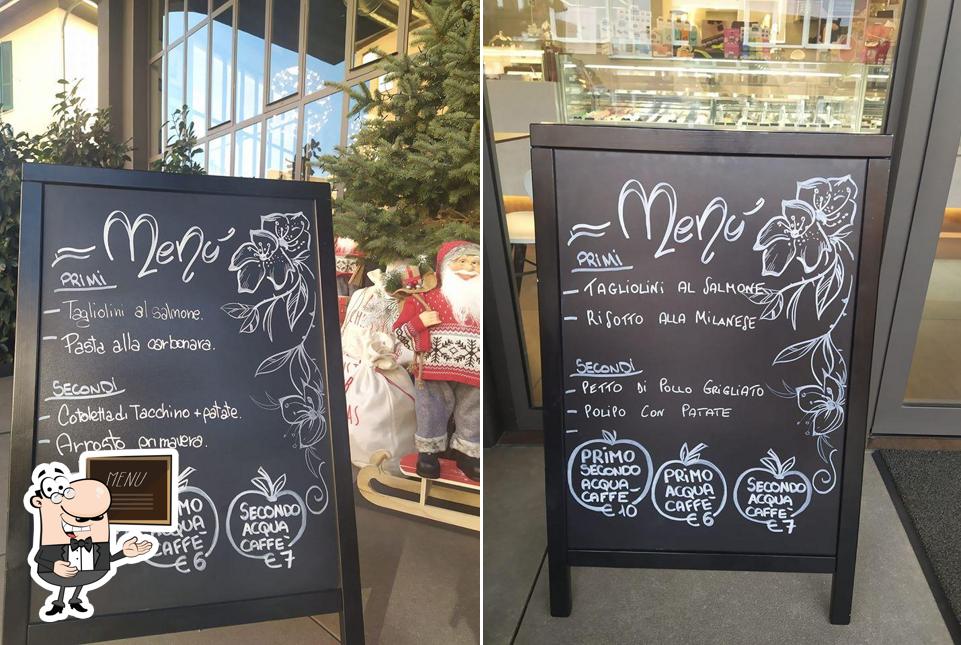 Menú
PRIMI
- Tagliolini al salmone.
- Pasta alla carbonara.
SECONDI
- Cotoletta di Tacchino + patate.
- Arrosto primavera.
MENU
ACQUA
CAFFÈ
€ 6
SECONDO
ACQUA
CAFFÈ
€ 7
Menú
PRIMI
- TAGLIOLINI AL SALMONE
- RISOTTO ALLA MILANESE
SECONDI
- PETTO DI POLLO GRIGLIATO
- POLIPO CON PATATE
-
PRIMO
SECONDO
ACQUA
CAFFE
€ 10
PRIMO
ACQUA
CAFFE
€ 6
SECONDO
ACQUA
CAFFE
€ 7